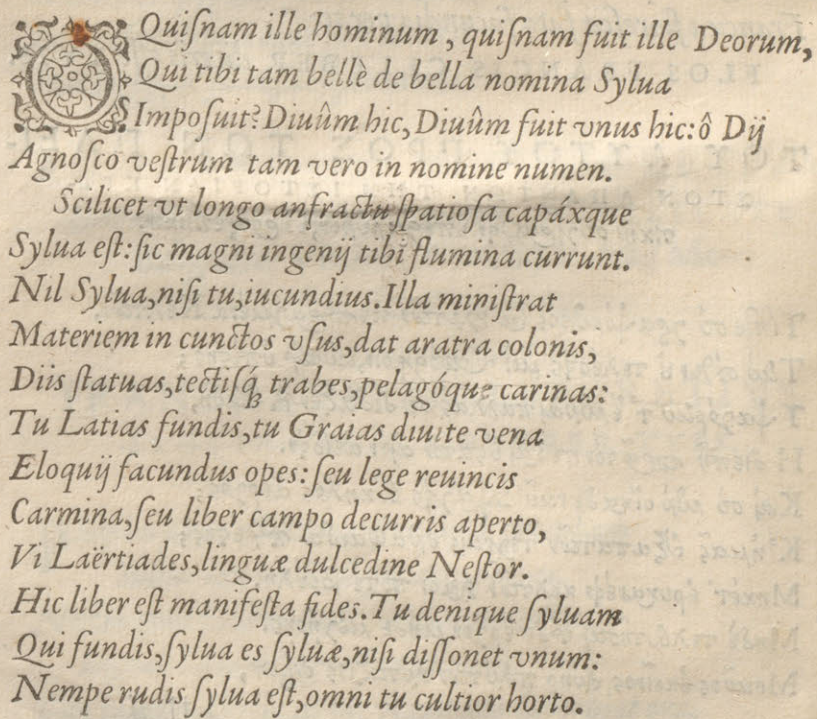 O Quiſnam ille hominum, quiſnam fuit ille Deorum,
Qui tibi tam bellè de bella nomina Sylua
Impoſuit? Diuûm hic, Diuûm fuit vnus hic: ô Dij
Agnoſco veſtrum tam vero in nomine numen.
Scilicet vt longo anfractu ſpatioſa capáxque
Sylua eſt: ſic magni ingenij tibi flumina currunt.
Nil Sylua, niſi tu, iucundius. Illa miniſtrat
Materiem in cunctos vſus, dat aratra colonis,
Diis ſtatuas, tectiſq́; trabes, pelagóque carinas:
Tu Latias fundis, tu Graias diuite vena
Eloquij facundus opes: ſeu lege reuincis
Carmina, ſeu liber campo decurris aperto,
Vi Laërtiades, linguæ dulcedine Neſtor.
Hic liber eſt manifeſta fides. Tu denique ſyluam
Qui fundis, ſylua es ſyluæ, niſi diſſonet vnum:
Nempe rudis ſylua eſt, omni tu cultior horto.